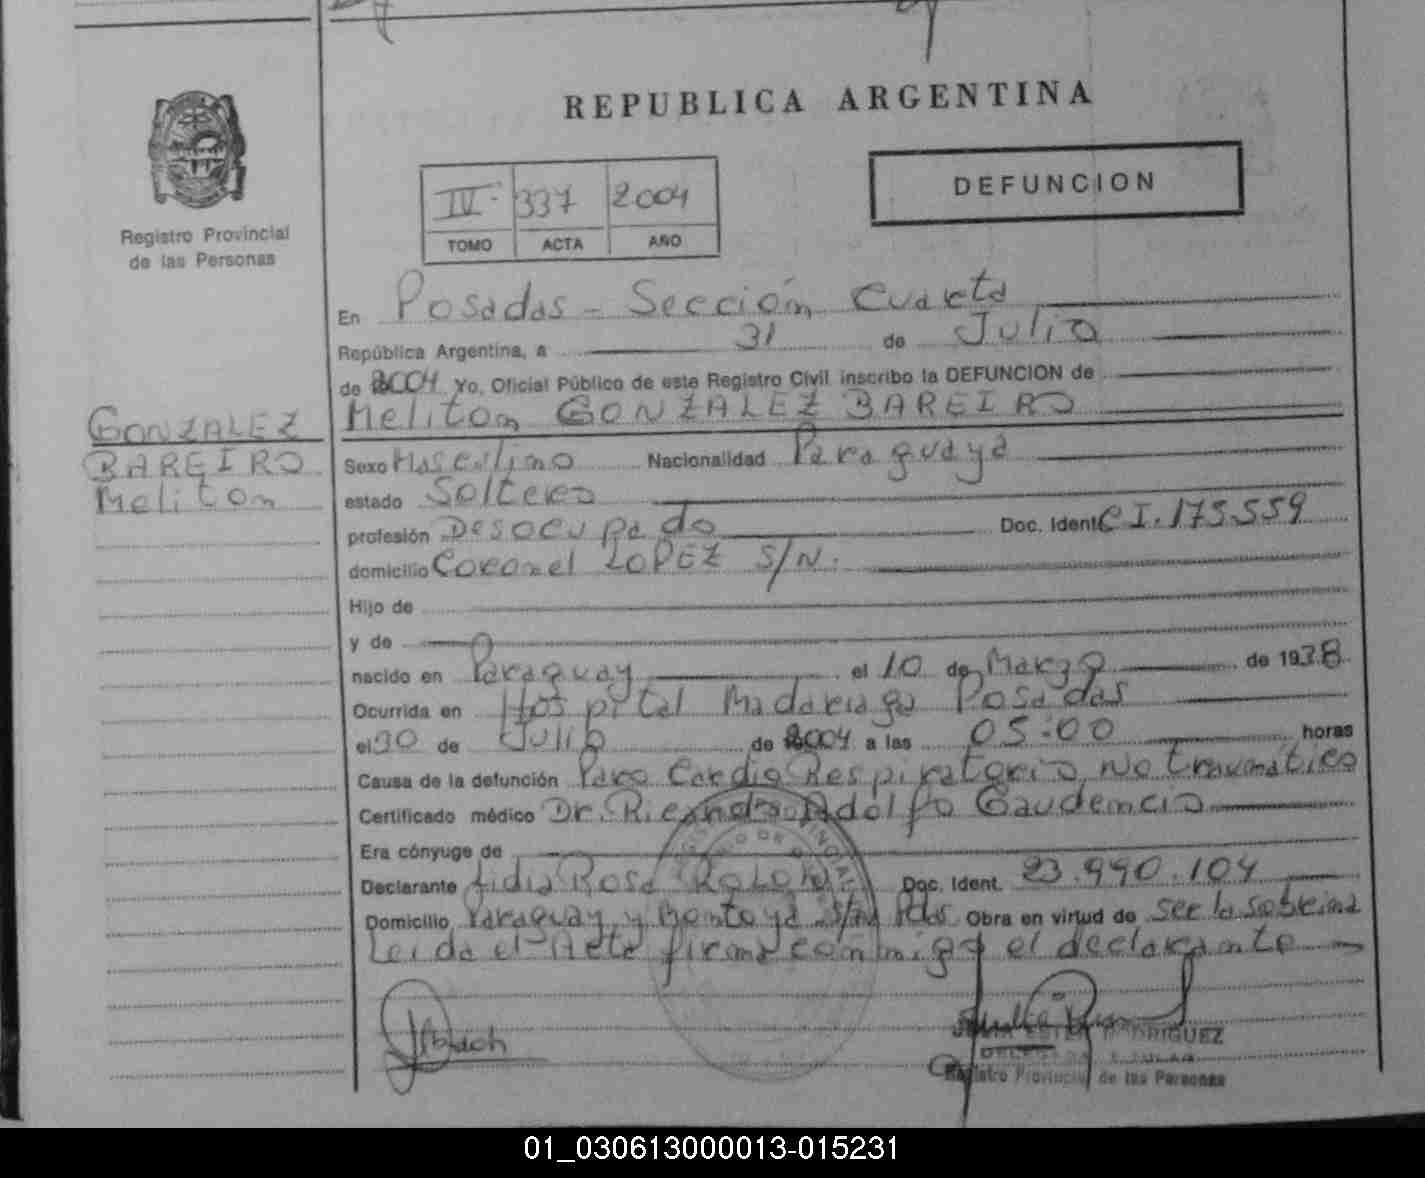 REPUBLICA ARGENTINA
Registro Provincial
de las Personas
IV 337 2004
TOMO ACTA AÑO
DEFUNCION
GONZALEZ
BAREIRO
Meliton
En Posadas - Sección Cuarta
República Argentina, a 31 de Julio
de 2004 Yo, Oficial Público de este Registro Civil inscribo la DEFUNCION de
Meliton GONZALEZ BAREIRO
Sexo Masculino Nacionalidad Paraguaya
estado Soltero
profesión Desocupado Doc. Ident. CI. 175.559
domicilio Coronel LOPEZ S/N.
Hijo de
y de
nacido en Paraguay el 10 de Marzo de 1938
Ocurrida en Hospital Madariaga Posadas
el 30 de Julio de 2004 a las 05:00 horas
Causa de la defunción Paro Cardio Respiratorio No traumático
Certificado médico Dr. Ricardo Adolfo Gaudencio
Era cónyuge de
Declarante Lidia Rosa Doc. Ident. 23.990.104
Domicilio Paraguay y Montoya S/N Pdas Obra en virtud de ser la sobrina
Leida el Acta firma conmigo el declarante
RODRIGUEZ
Registro Provincial de las Personas
01_030613000013-015231